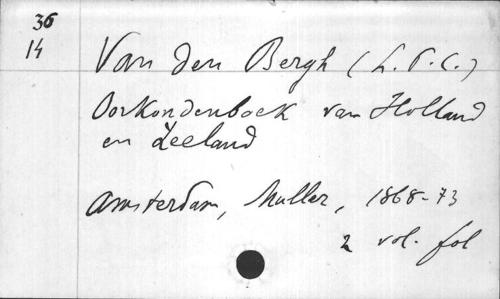 36
14
Van den Bergh (L. P. C.)
Oorkondenboek van Holland
en Zeeland
Amsterdam, Muller, 1868-73
2 vol. fol